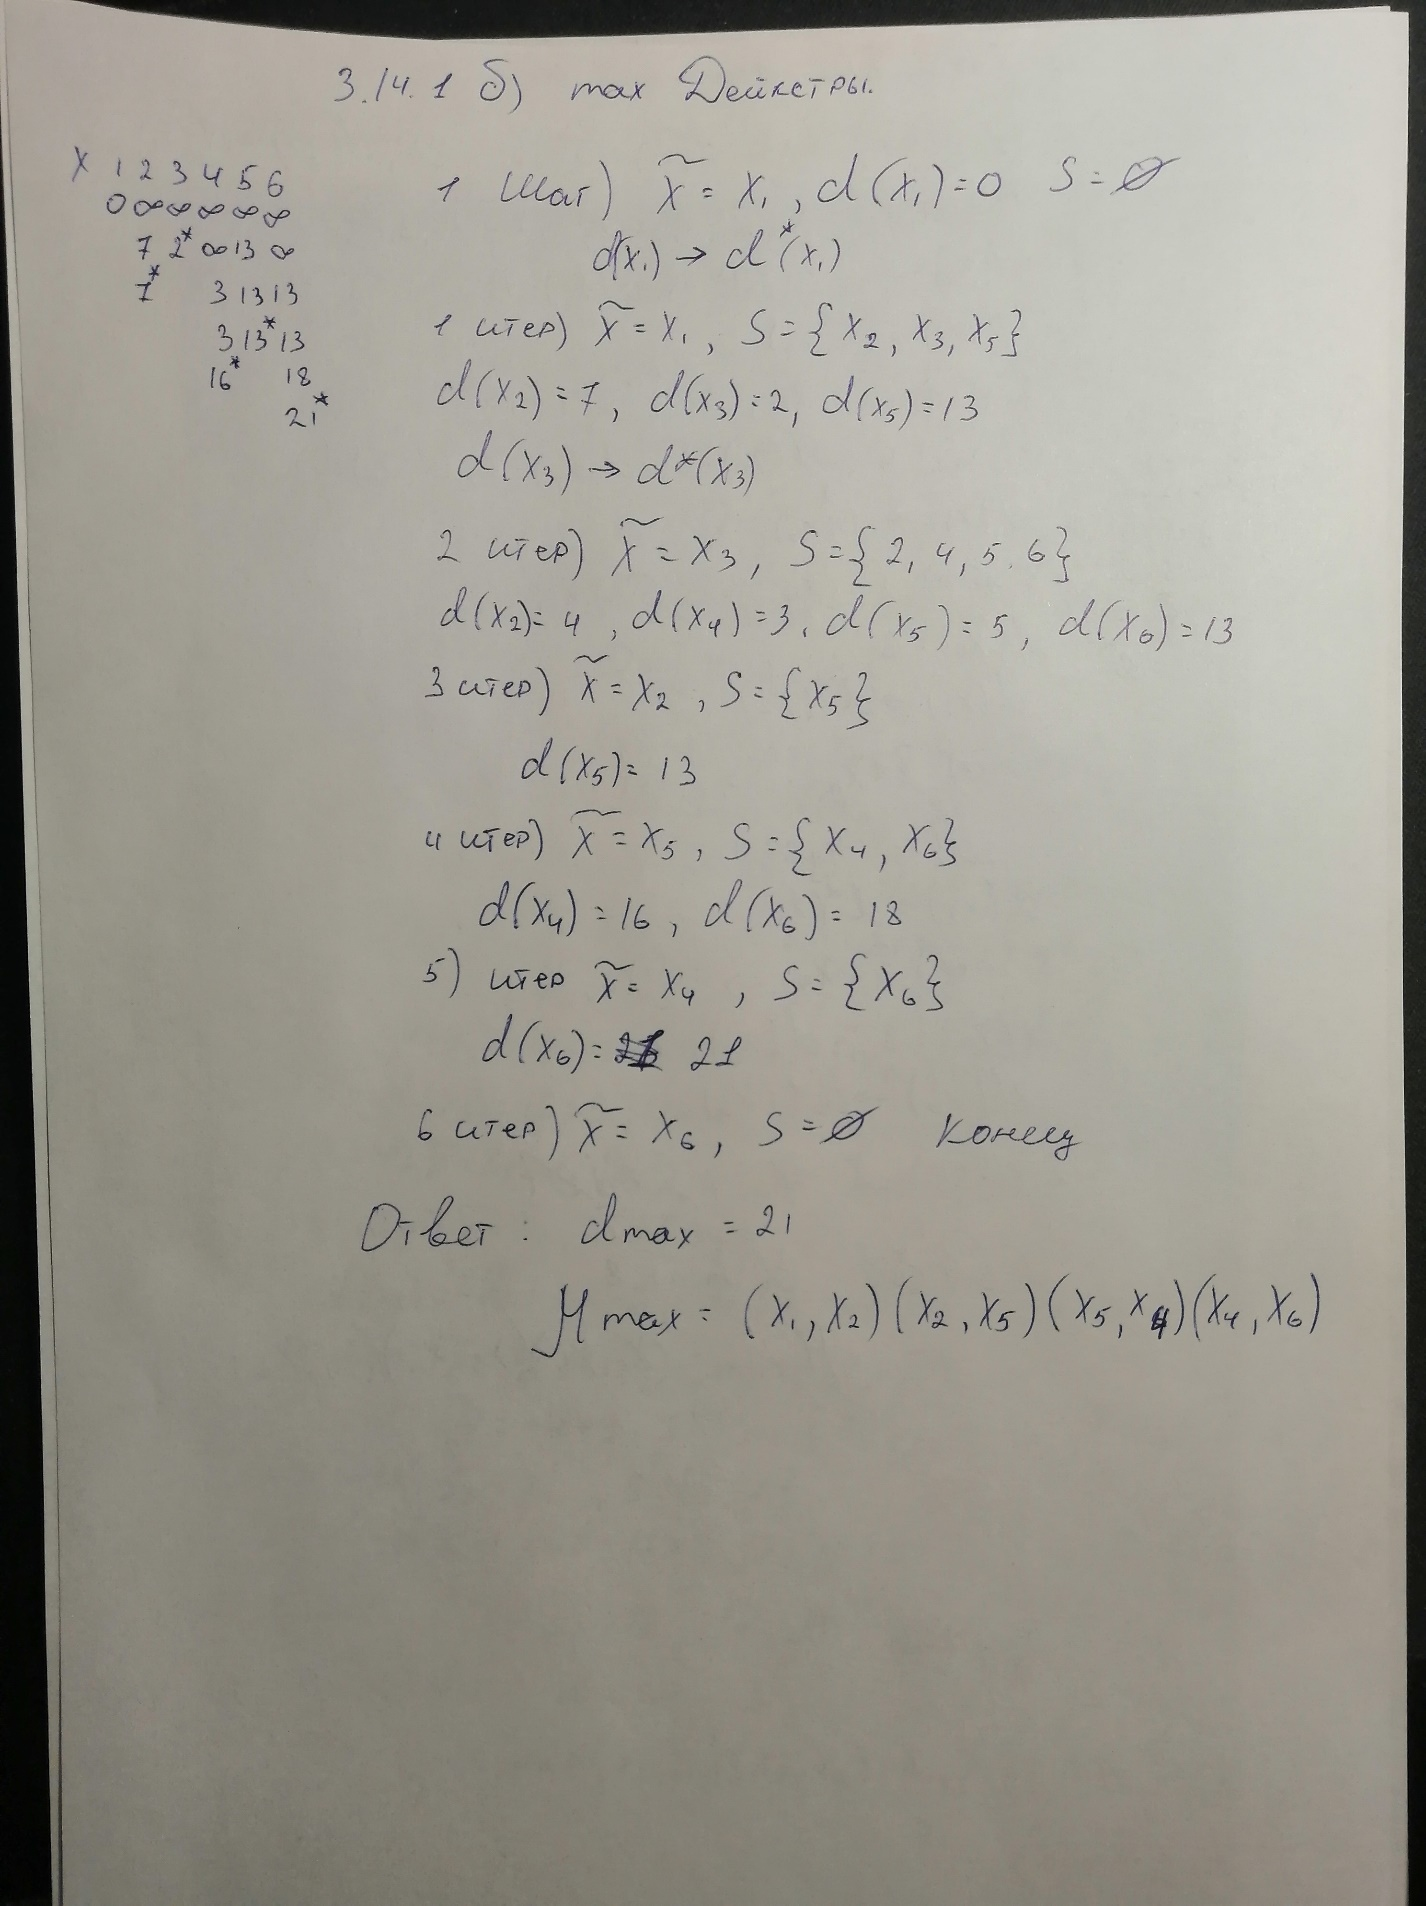 3.14.1 б) max Дейкстры.
X 1 2 3 4 5 6
0 ∞ ∞ ∞ ∞ ∞
7 2* ∞ 13 ∞
7* 3 13 13
3 13* 13
16* 18
21*
1 шаг) x̃ = x₁, d(x₁)=0 S=∅
d(x₁) → d*(x₁)
1 итер) x̃ = x₁, S={x₂, x₃, x₅}
d(x₂)=7, d(x₃)=2, d(x₅)=13
d(x₃) → d*(x₃)
2 итер) x̃ = x₃, S={2, 4, 5. 6}
d(x₂)=4, d(x₄)=3, d(x₅)=5, d(x₆)=13
3 итер) x̃ = x₂, S={x₅}
d(x₅)= 13
4 итер) x̃ = x₅, S={x₄, x₆}
d(x₄)=16, d(x₆)= 18
5) итер x̃ = x₄, S={x₆}
d(x₆)= 21
6 итер) x̃ = x₆, S=∅ Конец
Ответ: dmax = 21
μmax = (x₁, x₂)(x₂, x₅)(x₅, x₄)(x₄, x₆)